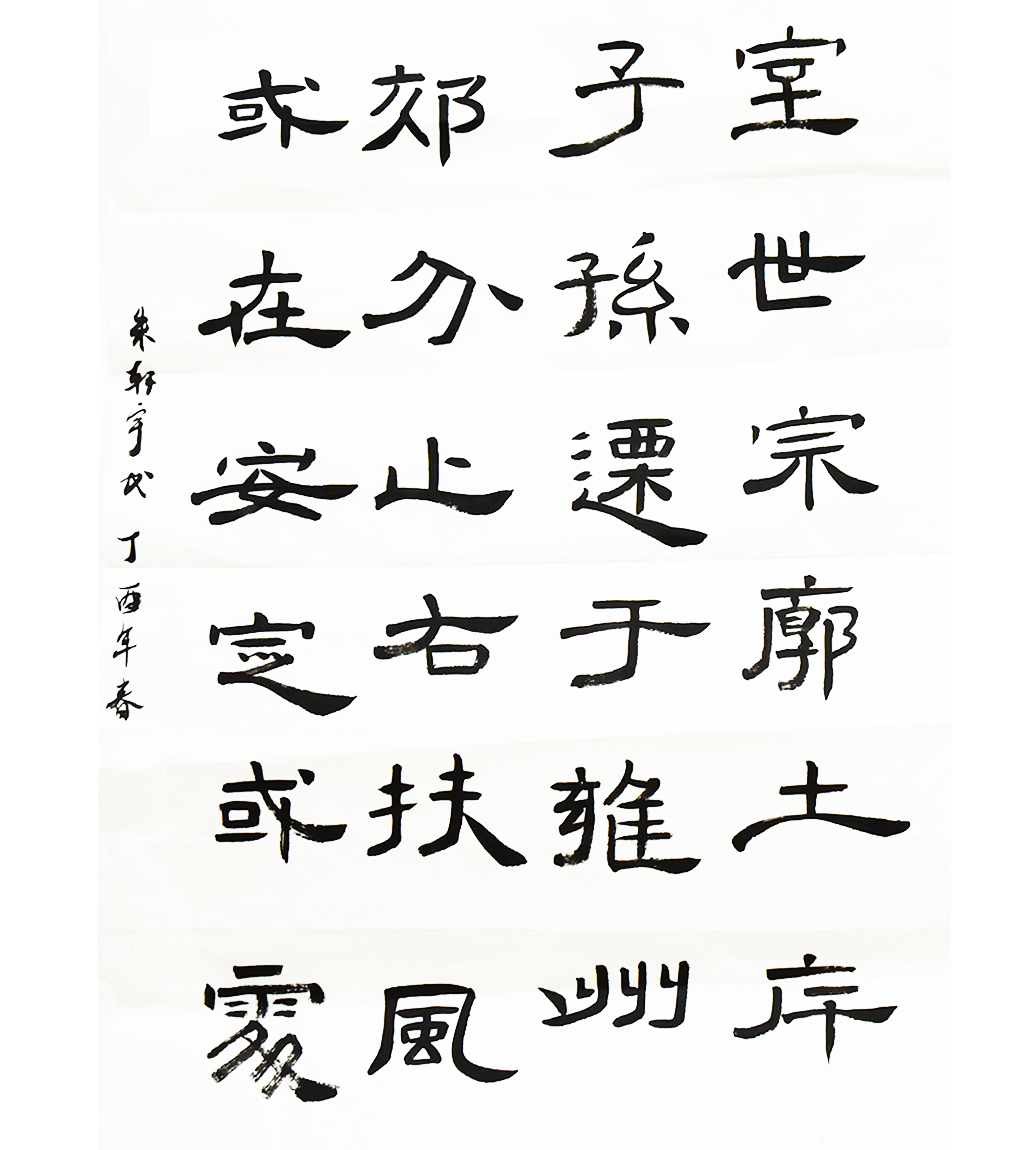 室世宗廓土斥
子孫遷于雍州
郊分止右扶風
或在安定或處
朱軒宇 丁酉年春